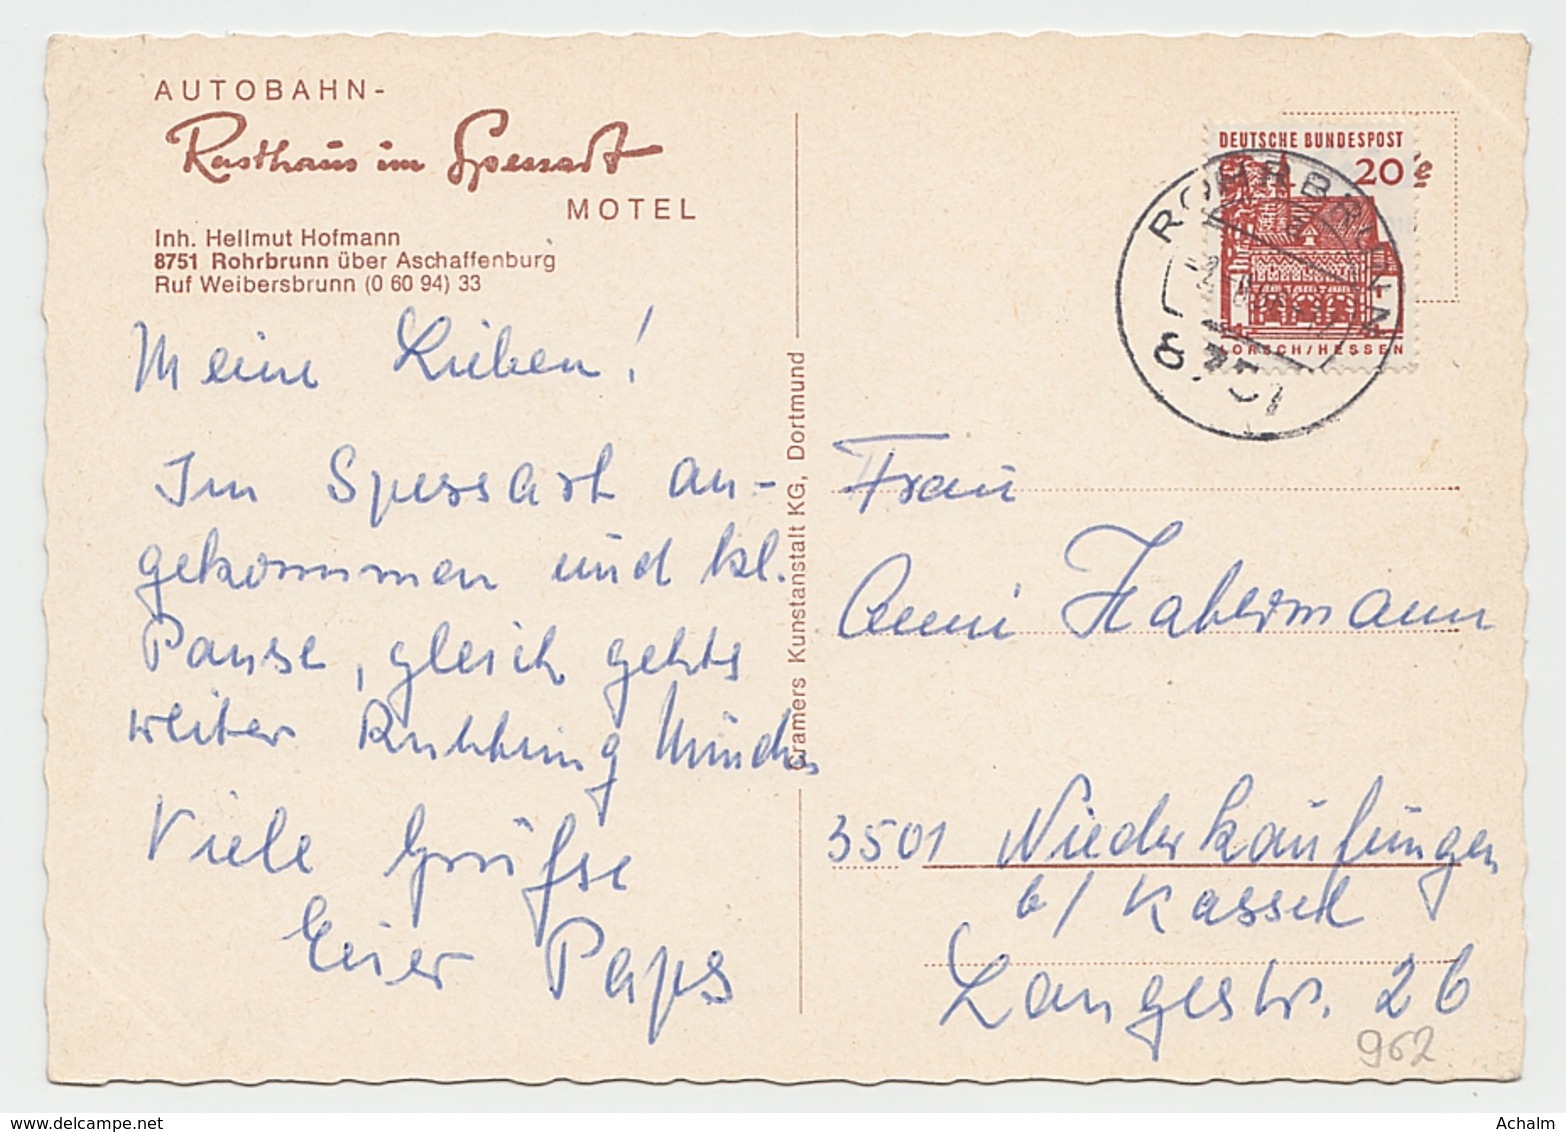 AUTOBAHN-
Rasthaus im Spessart
MOTEL
Inh. Hellmut Hofmann
8751 Rohrbrunn über Aschaffenburg
Ruf Weibersbrunn (0 60 94) 33
Meine Lieben!
Im Spessart an-
gekommen und kl.
Pause, gleich gehts
weiter Richtung München
Viele Grüße
Euer Paps
Cramers Kunstanstalt KG, Dortmund
DEUTSCHE BUNDESPOST
20
LORSCH/HESSEN
ROHRBRUNN
8751
Frau
Anni Habermann
3501 Niederkaufungen
b/ Kassel
Langestr. 26
962
Achalm